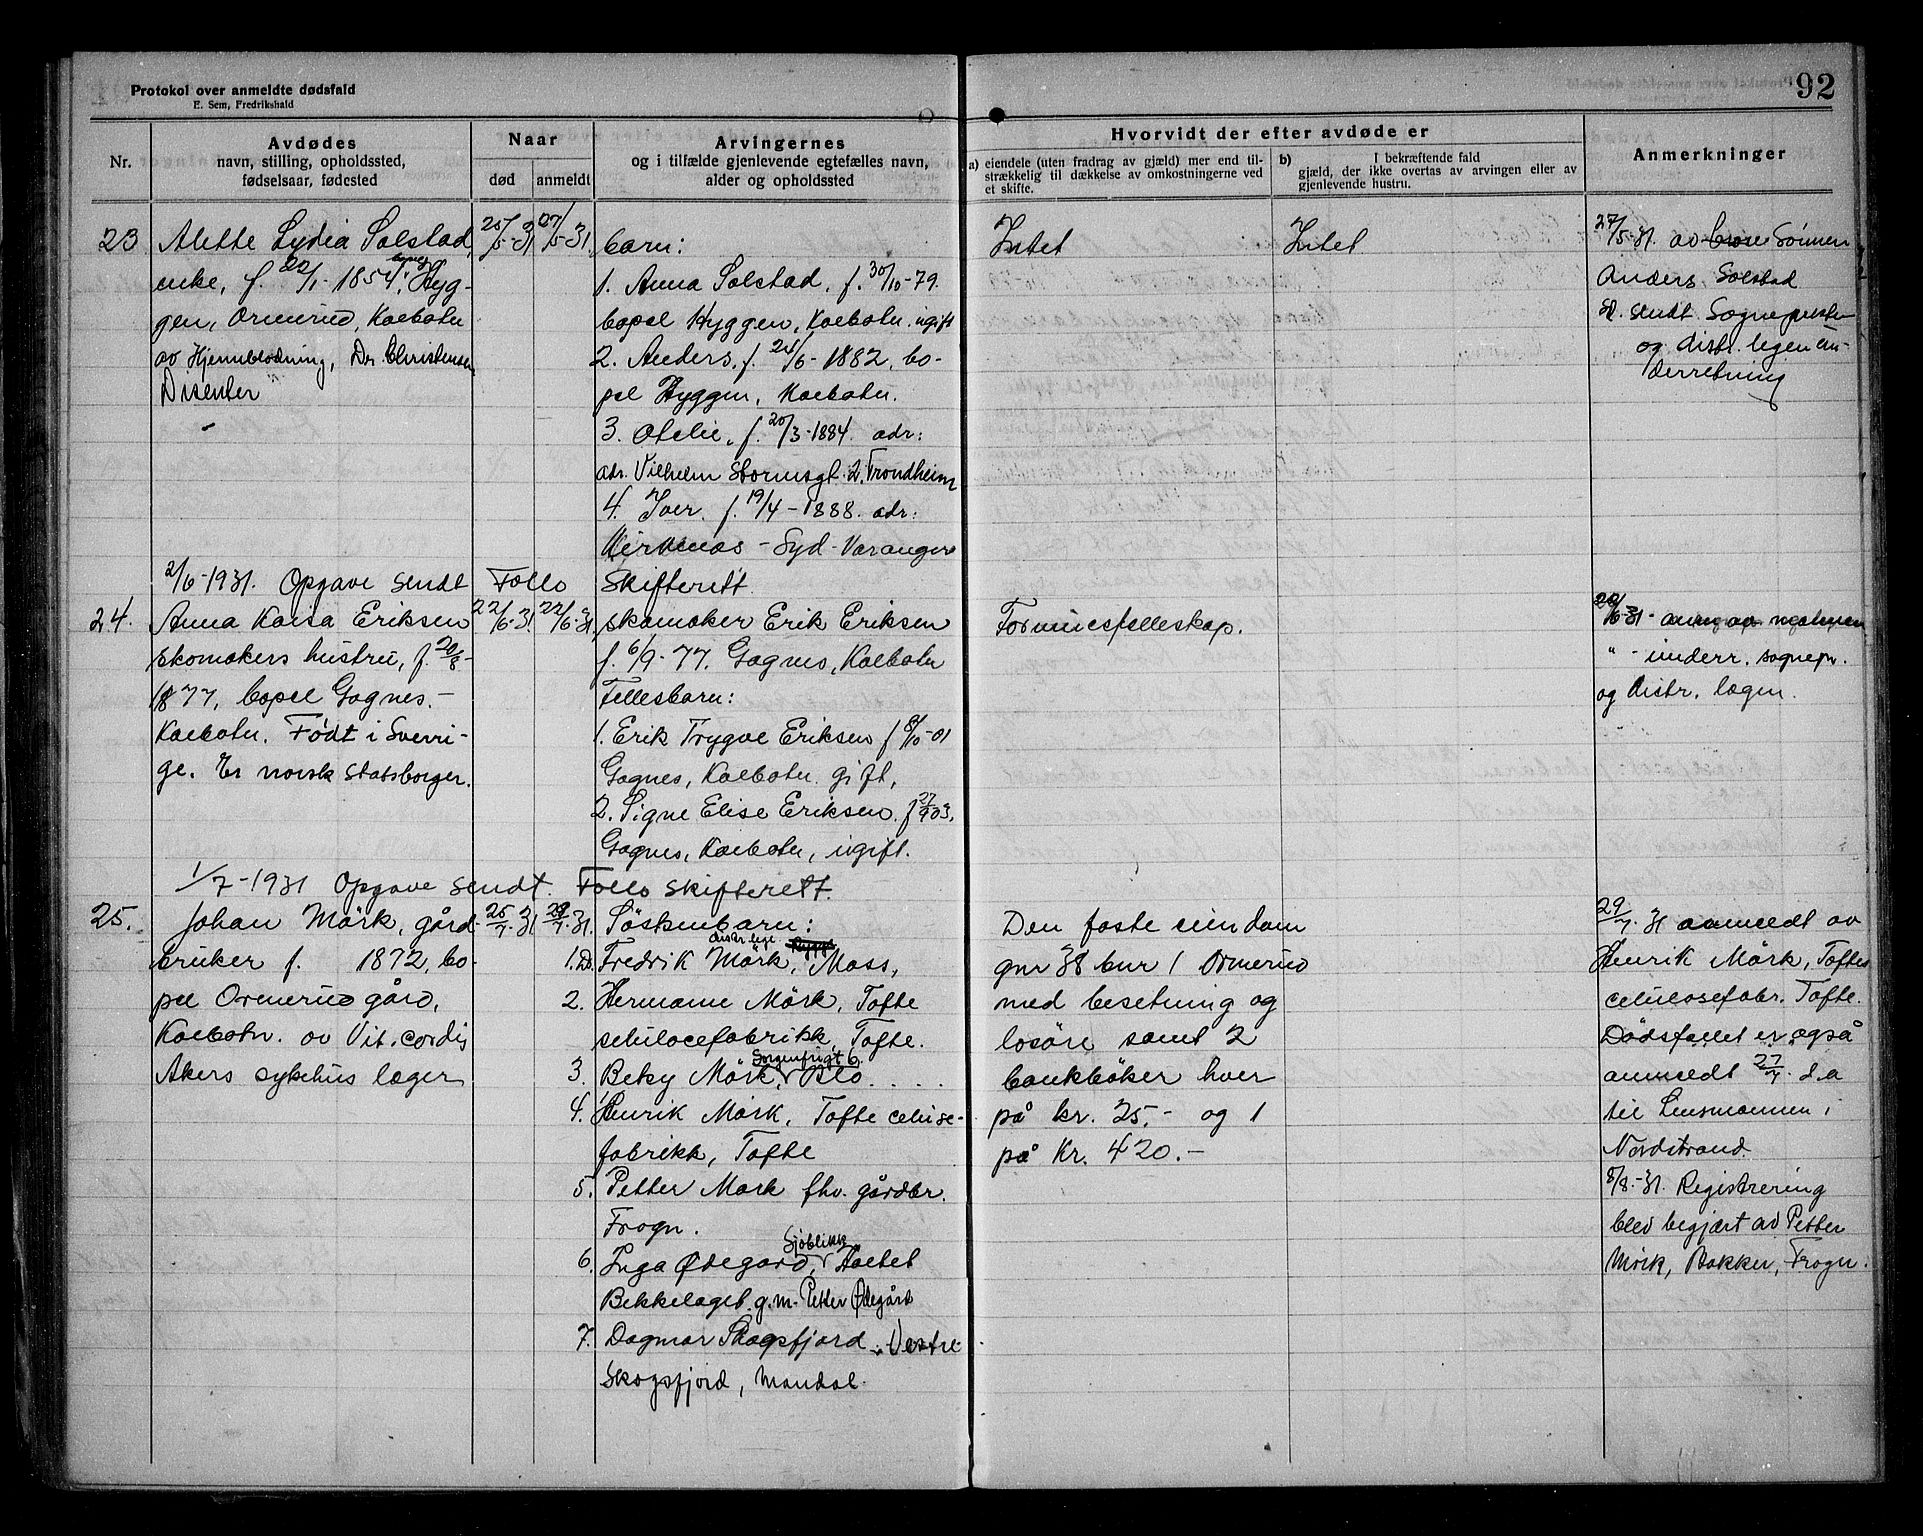 Protokol over anmeldte dødsfald
E. Sem, Fredrikshald
92
Nr.
Avdødes
navn, stilling, opholdssted,
fødselsaar, fødested
Naar
død
anmeldt
Arvingernes
og i tilfælde gjenlevende egtefælles navn,
alder og opholdssted
Hvorvidt der efter avdøde er
a) eiendele (uten fradrag av gjæld) mer end til-
strækkelig til dækkelse av omkostningerne ved
et skifte.
b) I bekræftende fald
gjæld, der ikke overtas av arvingen eller av
gjenlevende hustru.
Anmerkninger
23
Alette Lydia Solstad,
enke, f. 22/1-1854, bopæl Hyg-
gen, Ormerud, Kolbotn
av Hjerneblødning, Dr. Christensen
Disenter
25/5-31
27/5-31
barn:
1. Anna Solstad, f. 30/10-79.
bopel Hyggen, Kolbotn. ugift
2. Anders, f. 24/6-1882, bo-
pel Hyggen, Kolbotn.
3. Otelie, f. 20/3-1884. adr:
adr. Vilhelm Stormsgt. 2. Trondheim
4. Iver. f. 19/4-1888. adr:
Kirkenæs - Syd-Varanger
Intet
Intet
27/5-31. av Sönnen
Anders Solstad
S. D. sendt Sogneprester
og distr. legen un-
derretning
2/6-1931. Opgave sendt Follo Skifterett.
24.
Anna Kaisa Eriksen
skomakers hustru, f. 20/8-
1877, bopel Gognes.-
Kolbotn. Født i Sverri-
ge. Er norsk statsborger.
22/6-31
22/6-31
skomaker Erik Eriksen
f. 6/9-77. Gognes, Kolbotn
Fellesbarn:
1. Erik Trygve Eriksen f 8/10-01
Gognes, Kolbotn. gift,
2. Signe Elise Eriksen. f 27/9 03,
Gognes, Kolbotn, ugift.
Formuesfelleskap.
22/6-31- anm. av
" - underr. sognepr.
og distr. lægen.
1/7-1931 Opgave sendt. Follo skifterett.
25.
Johan Mörk, gård-
bruker f. 1872, bo-
pel Ormerud gård,
Kolbotn. av Vit. cordis
Akers sykehus læger
25/7-31
29/7-31.
Söskenbarn:
1. Dr. Fredrik Mörk, distr. lege Rygge Moss,
2. Hermann Mörk, Tofte
celulocefabrikk, Tofte.
3. Beky Mörk, Sorgenfrigt 6. Oslo . . . .
4. Henrik Mörk, Tofte celuse-
fabrikk, Tofte
5. Petter Mörk fhv. gårdbr.
Frogn.
6. Inga Ødegård, Sjöblikk Holtet
Bekkelaget. g.m. Petter Ødegård
7. Dagmar Skogsfjord, Vestre
Skogsfjord, Mandal.
Den faste eiendom
gnr 38 bnr 1 Ormerud
med besetning og
losöre samt 2
bankböker hver
på kr. 25,- og 1
på Kr. 420.-
29/7. 31 anmeldt av
Henrik Mörk, Toftes
celulosefabr. Tofte.
Dödsfallet er også
anmeldt 27/7. d.a
til Lensmannen i
Nordstrand.
8/8.-31. Registrering
blev begjært av Petter
Mörk, Bakker, Frogn.